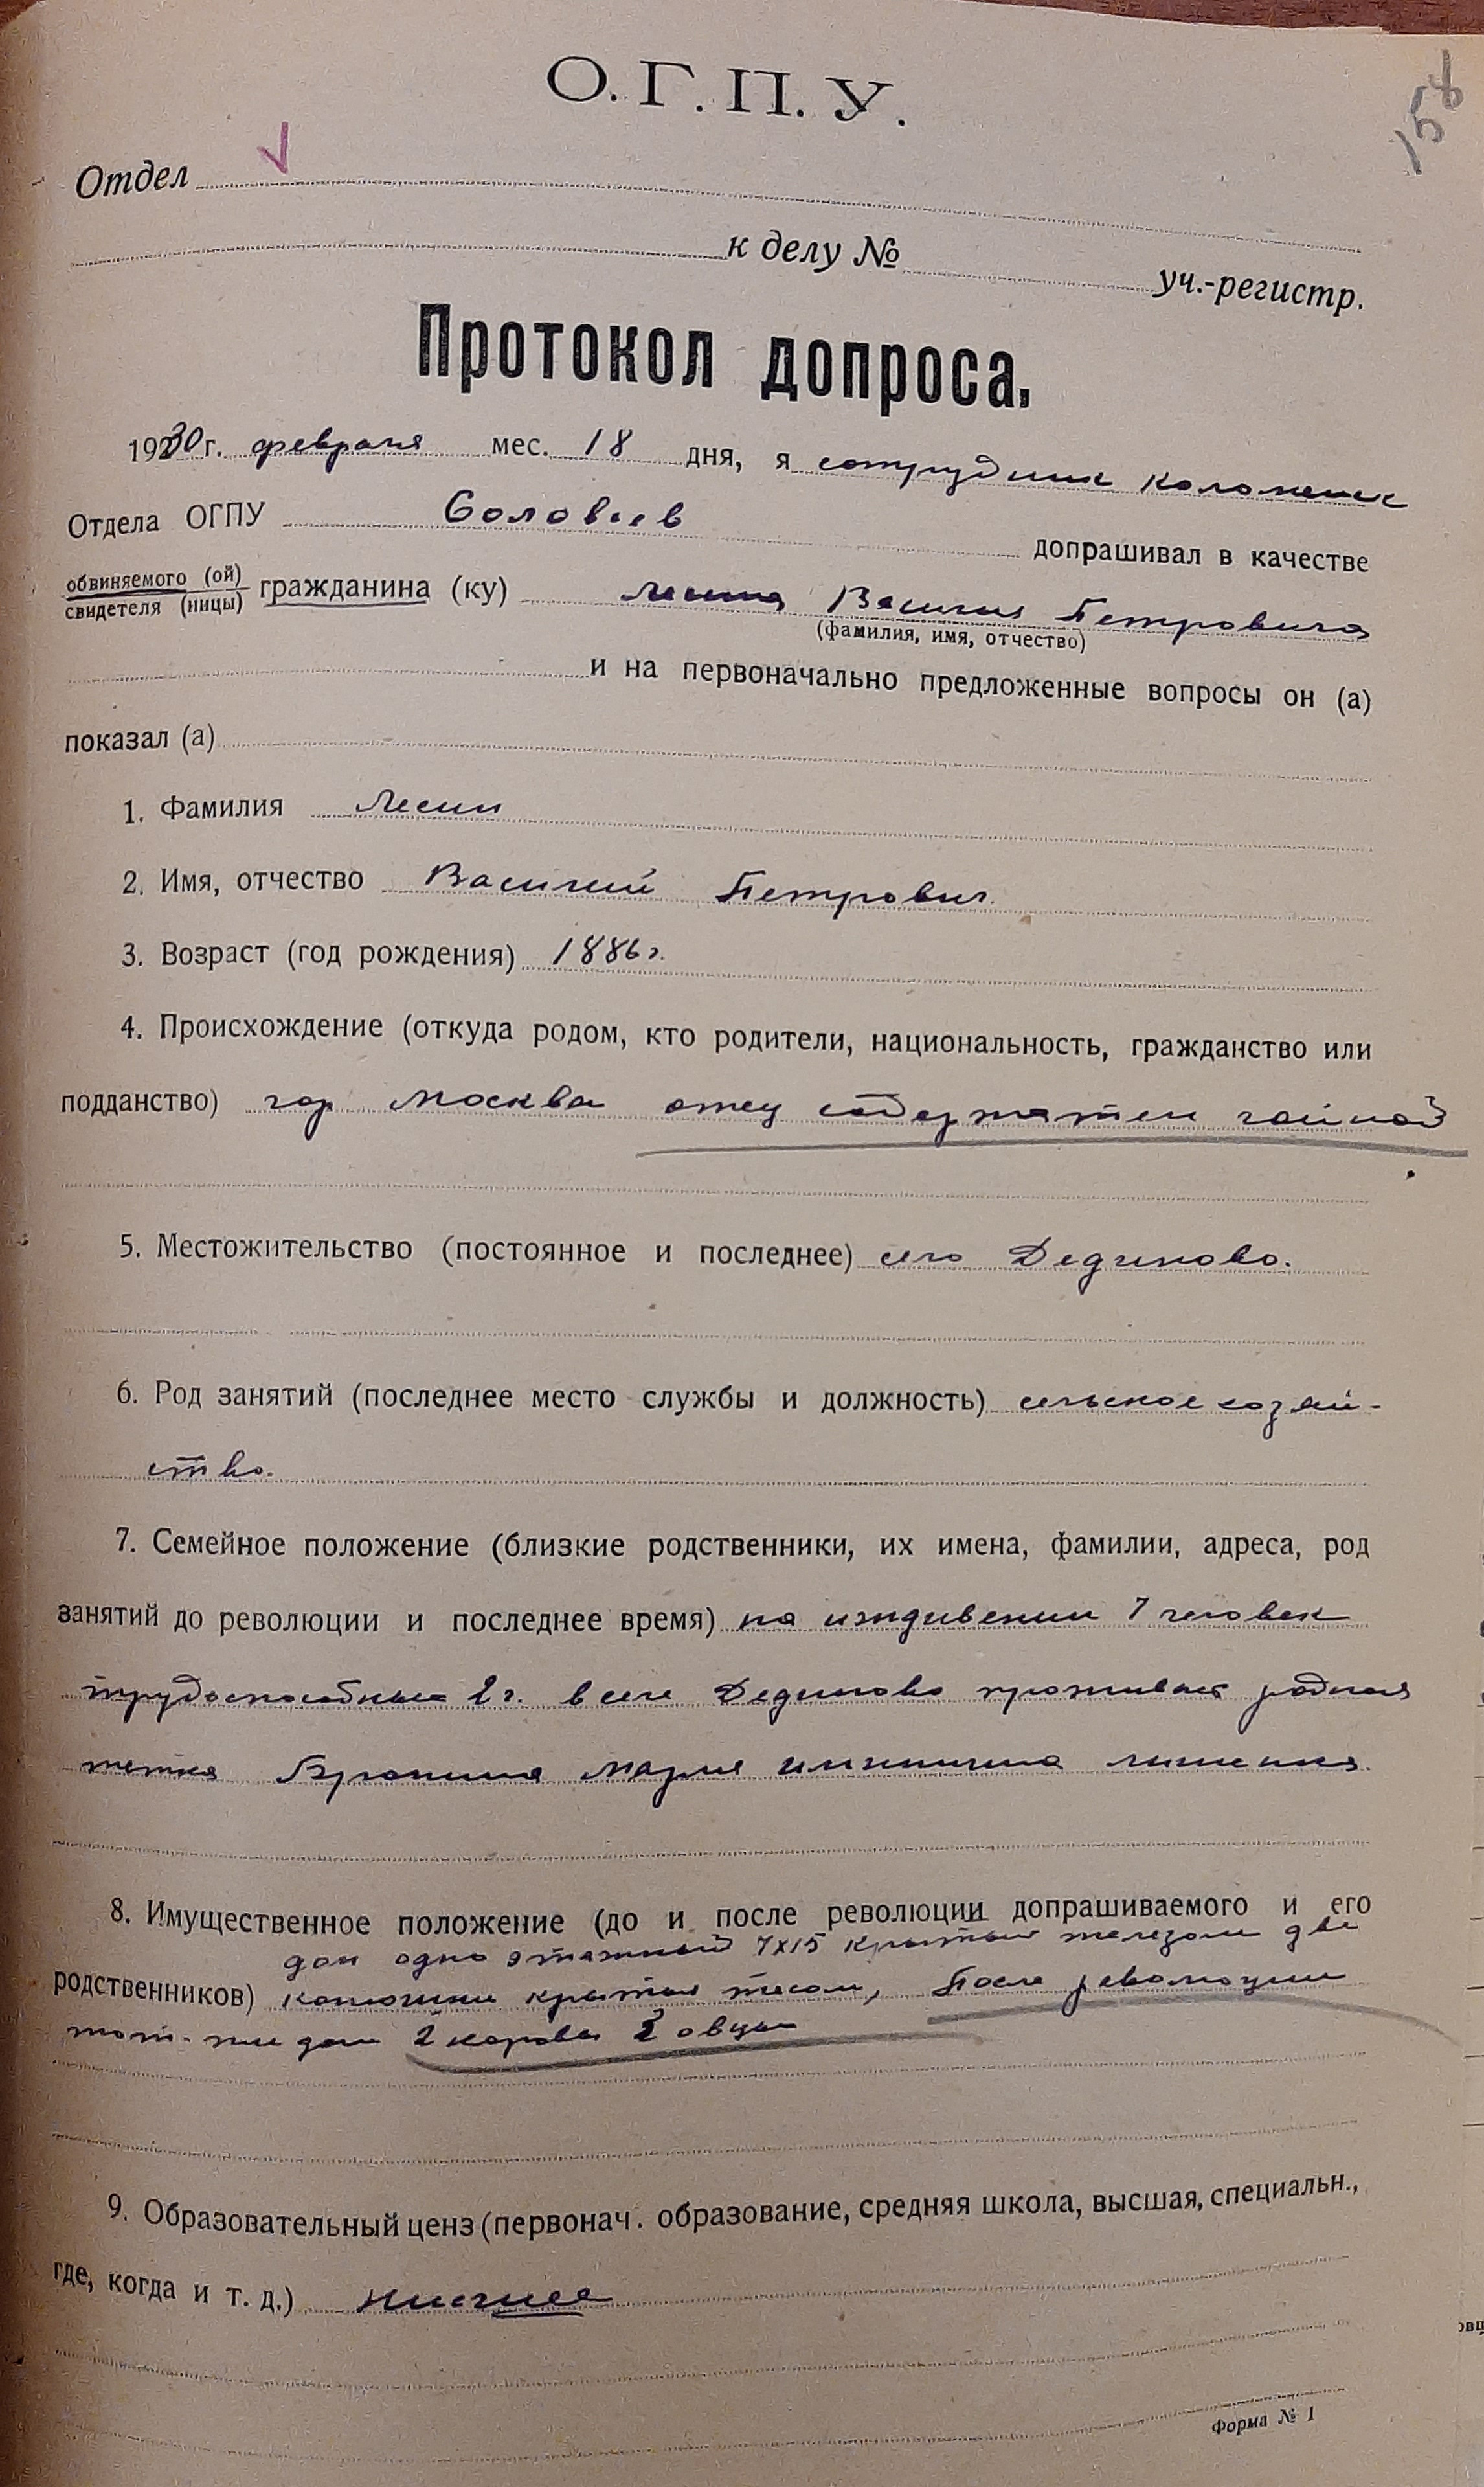 158
О.Г.П.У.
Отдел
к делу №
уч.-регистр.
Протокол допроса.
1930 г. февраля мес. 18 дня, я сотрудник Коломенск
Отдела ОГПУ Соловьев допрашивал в качестве
обвиняемого (ой)
свидетеля (ницы) гражданина (ку) Лесина Василия Петровича
(фамилия, имя, отчество)
и на первоначально предложенные вопросы он (а)
показал (а)
1. Фамилия Лесин
2. Имя, отчество Василий Петрович.
3. Возраст (год рождения) 1886 г.
4. Происхождение (откуда родом, кто родители, национальность, гражданство или
подданство) гор Москва отец содержатель чайной
5. Местожительство (постоянное и последнее) село Дединово.
6. Род занятий (последнее место службы и должность) сельское хозяй-
ство.
7. Семейное положение (близкие родственники, их имена, фамилии, адреса, род
занятий до революции и последнее время) на иждивении 7 человек
трудоспособных 2 ч. в селе Дединово проживает родная
тетка Мария лишенка.
8. Имущественное положение (до и после революции допрашиваемого и его
дом одно этажный 7х15 крытый железом две
родственников) конюшни крытые тесом, После революции
тот-же дом 2 коровы 2 овцы
9. Образовательный ценз (первонач. образование, средняя школа, высшая, специальн.,
где, когда и т. д.) нисшее
Форма № 1